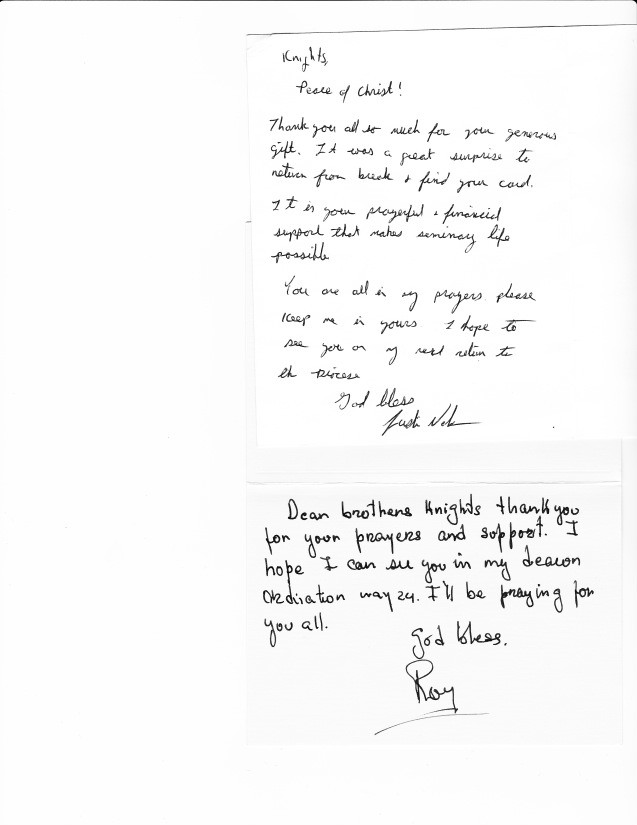 Knights,
Peace of Christ!
Thank you all so much for your generous
gift. It was a great surprise to
return from break & find your card.
It is your prayerful & financial
support that makes seminary life
possible
You are all in my prayers please
keep me in yours I hope to
see you on my next return to
the Diocese
God bless
Justin
Dear brothers Knights thank you
for your prayers and support. I
hope I can see you in my deacon
Ordination may 24. I'll be praying for
you all.
God bless.
Roy